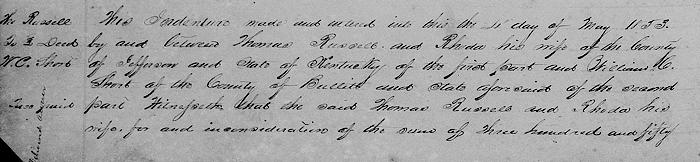 Th Russell
To } Deed
W. C. Short
This Indenture made and entered into this the 4 day of May 1853.
by and between Thomas Russell and Rhoda his wife of the County
of Jefferson and State of Kentucky of the first part and William C.
Short of the County of Bullitt and State aforesaid of the second
part Witnesseth that the said Thomas Russell and Rhoda his
wife, for and inconsideration of the sum of three hundred and fifty